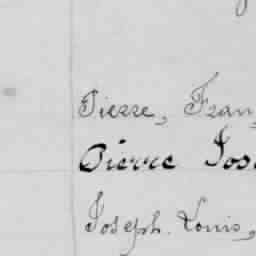 Pierre, Fran
Pierre Jos
Joseph. Louis,